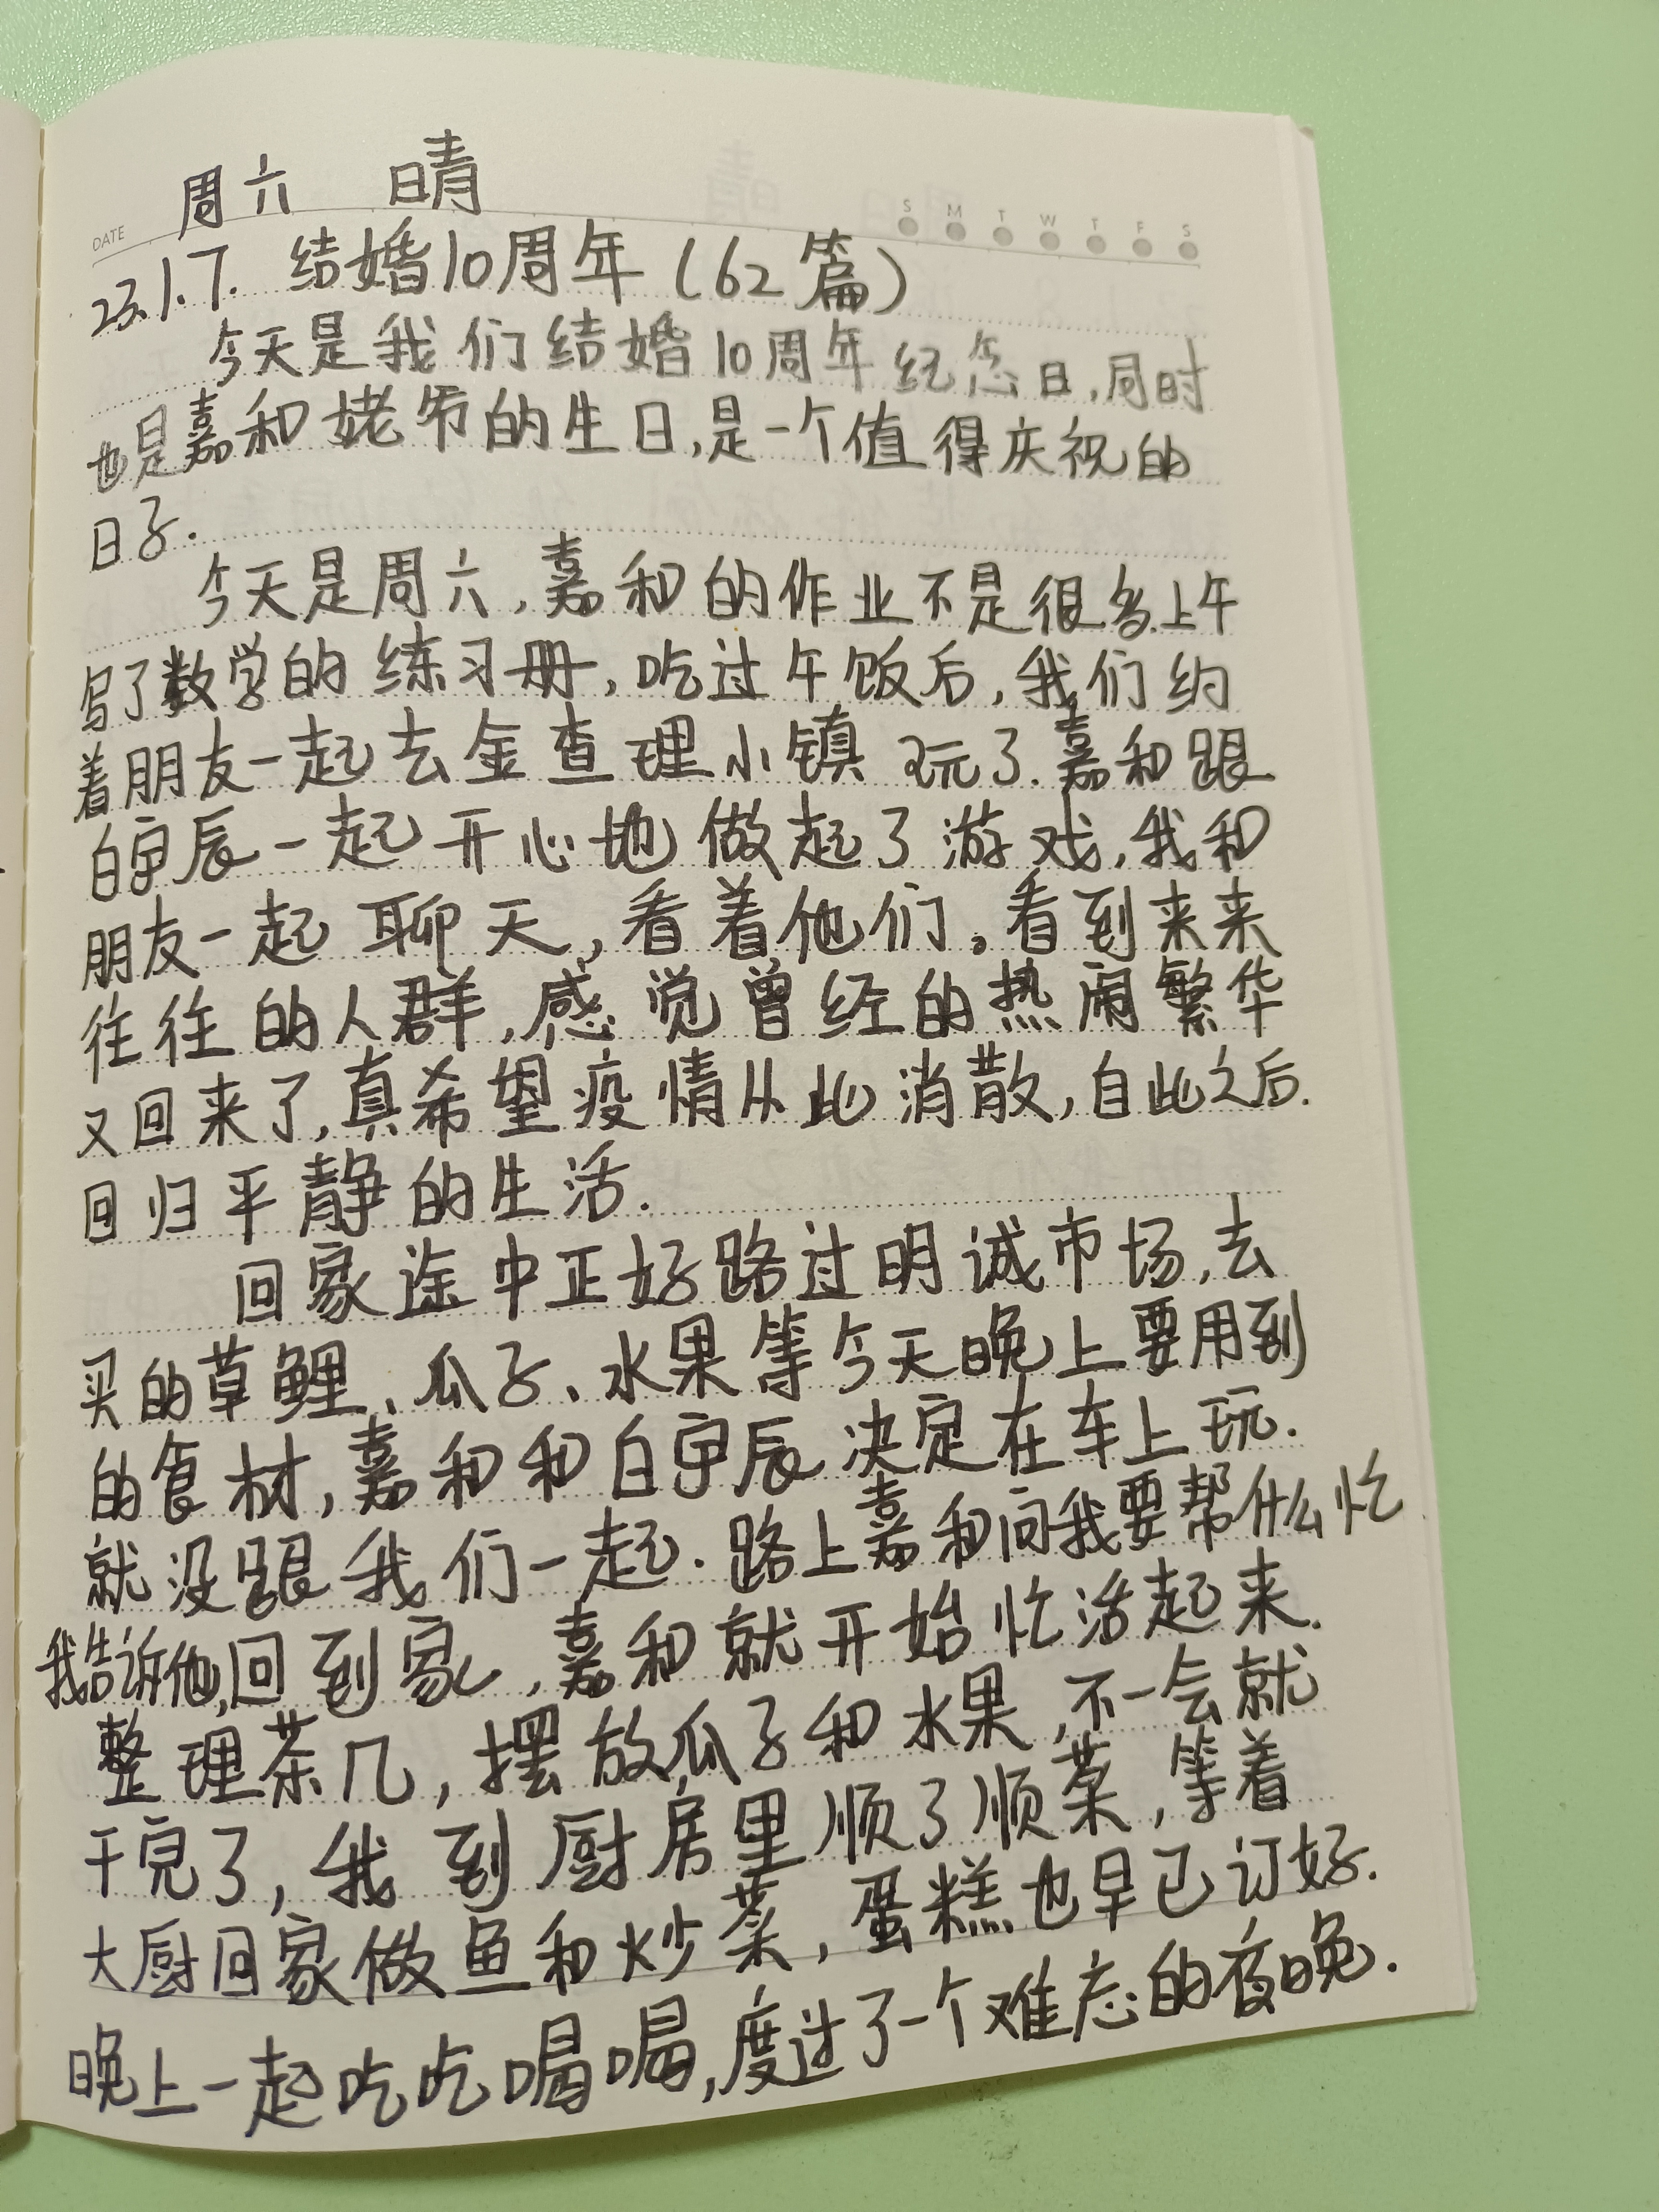 周六 晴
DATE S M T W T F S
23.1.7. 结婚10周年(62篇)
今天是我们结婚10周年纪念日,同时
也是嘉和姥爷的生日,是一个值得庆祝的
日子.
今天是周六,嘉和的作业不是很多.上午
写了数学的练习册,吃过午饭后,我们约
着朋友一起去金查理小镇玩了.嘉和跟
白宇辰一起开心地做起了游戏,我和
朋友一起聊天,看着他们。看到来来
往往的人群,感觉曾经的热闹繁华
又回来了,真希望疫情从此消散,自此之后.
回归平静的生活.
回家途中正好路过明诚市场,去
买的草鲤、瓜子、水果等今天晚上要用到
的食材,嘉和和白宇辰决定在车上玩.
就没跟我们一起.路上嘉和问我要帮什么忙
我告诉他,回到家,嘉和就开始忙活起来.
整理茶几,摆放瓜子和水果,不一会就
干完了,我到厨房里顺了顺菜,等着
大厨回家做鱼和炒菜,蛋糕也早已订好.
晚上一起吃吃喝喝,度过了一个难忘的夜晚.